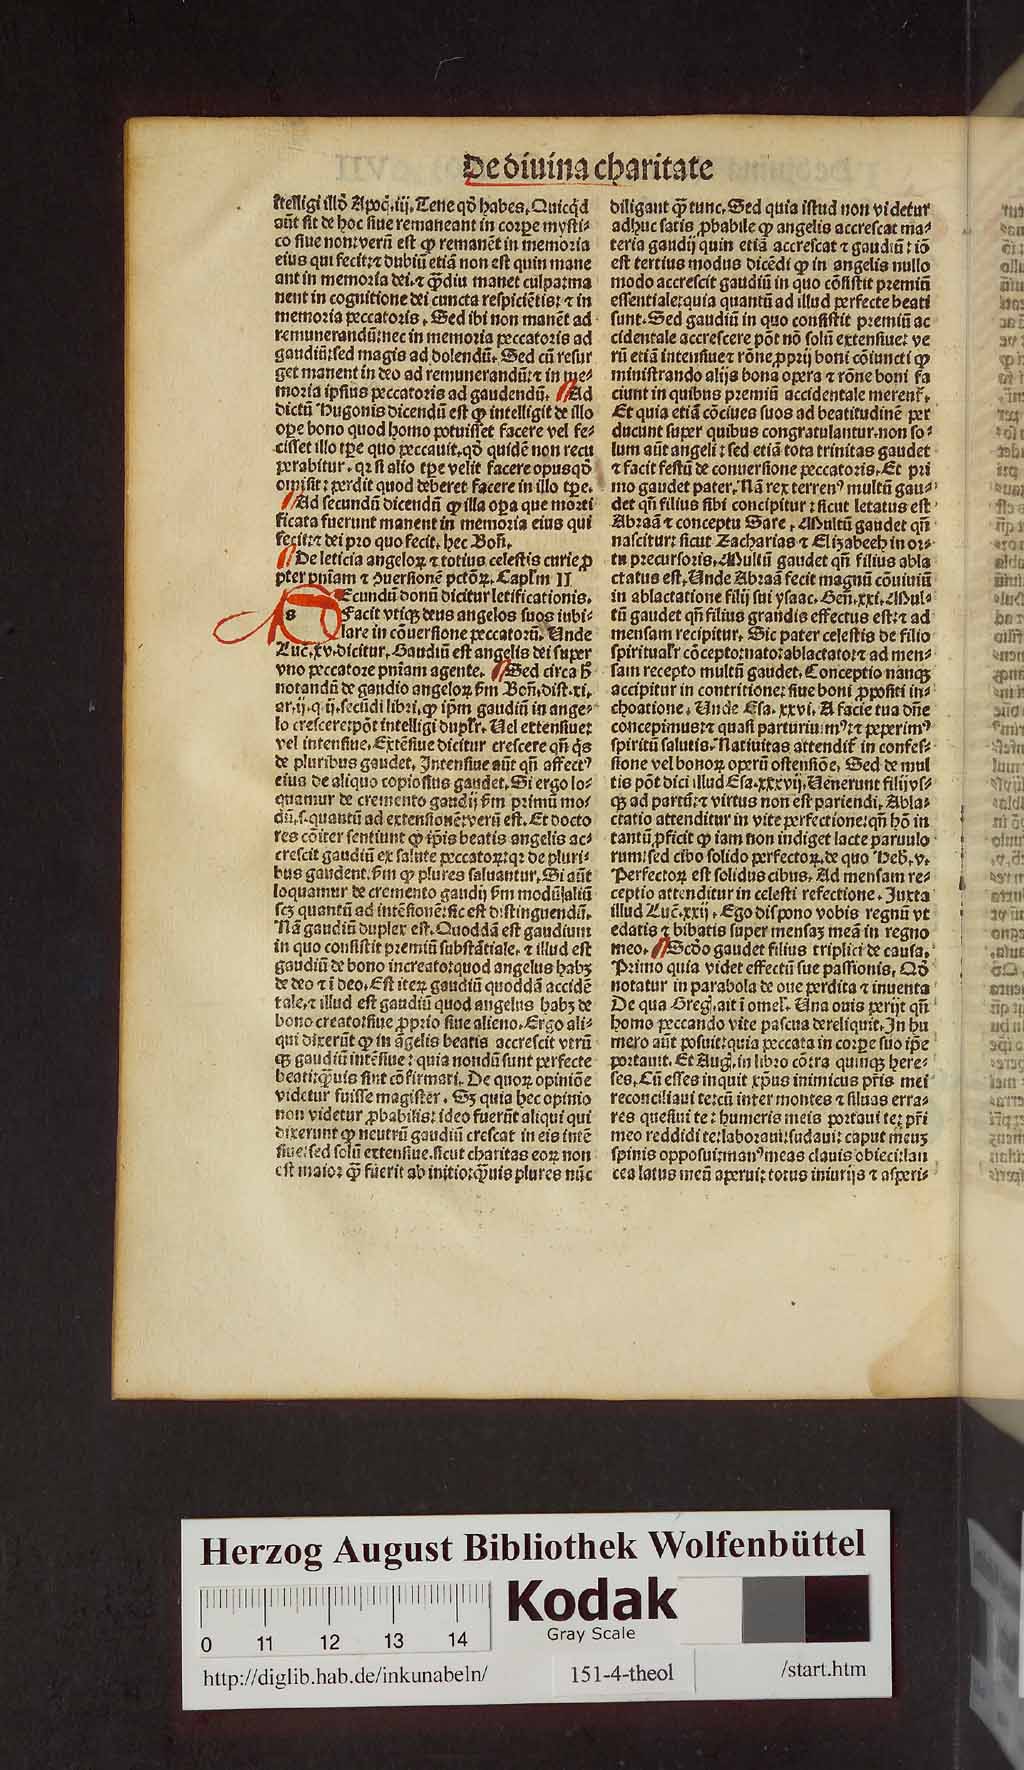 De diuina charitate
ítelligi illđ Apoc̄.iij.Tene qđ habes.Quicq̇d
aūt sit de hoc siue remaneant in corꝑe mysti⸗
co siue non:verū est ꝙ remanēt in memoria
eius qui fecit:⁊ dubiū etiā non est quin mane
ant in memoria dei.⁊ q̄diu manet culpa:ma
nent in cognitione dei cuncta respiciētis:⁊ in
memoria peccatoris. Sed ibi non manēt ad
remunerandū:nec in memoria peccatoris ad
gaudiū:sed magis ad dolendū. Sed cū resur
get manent in deo ad remunerandū:⁊ in me⸗
moria ipsius peccatoris ad gaudendū. ¶Ad
dictū Hugonis dicendū est ꝙ intelligit de illo
oꝑe bono quod homo potuisset facere vel fe⸗
cisset illo tꝑe quo peccauit.qđ quidē non recu
perabitur. qꝛ si alio tꝑe velit facere opus qđ
omisit: perdit quod deberet facere in illo tꝑe.
¶Ad secundū dicendū ꝙ illa oꝑa que morti
ficata fuerunt manent in memoria eius qui
fecit:⁊ dei pro quo fecit. hec Boñ.
¶De leticia angeloꝝ ⁊ totius celestis curie ꝓ
pter pñiam ⁊ ꝯuersionē pctōꝝ. Caplm̄ II
s Ecundū donū dicitur letificationis.
Facit vtiqꝫ deus angelos suos iubi⸗
lare in cōuersione peccatorū. Unde
Luc̄.xv.dicitur. Gaudiū est angelis dei super
vno peccatore pñiam agente. ¶Sed circa h̄
notandū de gaudio angeloꝝ ẜm Boñ.dist.xi.
ar.ij.q.ij.secūdi libri.ꝙ ip̄m gaudiū in ange⸗
lo crescere:pōt intelligi dupl̄r. Uel extensiue:
vel intensiue. Extēsiue dicitur crescere qñ q̇s
de pluribus gaudet. Intensiue aūt qñ affectꝰ
eius de aliquo copiosius gaudet. Si ergo lo⸗
quamur de cremento gaudij ẜm primū mo⸗
dū.s.quantū ad extensionē:verū est. Et docto
res cōiter sentiunt ꝙ ip̄is beatis angelis ac⸗
crescit gaudiū ex salute peccatoꝝ:qꝛ de pluri⸗
bus gaudent.ẜm ꝙ plures saluantur. Si aūt
loquamur de cremento gaudij ẜm modū aliū
scꝫ quantū ad intēsionē:sic est distinguendū.
Nā gaudiū duplex est. Quoddā est gaudium
in quo consistit premiū substātiale. ⁊ illud est
gaudiū de bono increato:quod angelus habꝫ
de deo ⁊ ī deo. Est iteꝝ gaudiū quoddā accidē
tale.⁊ illud est gaudiū quod angelus habꝫ de
bono creato:siue ꝓprio siue alieno. Ergo ali⸗
qui dixerūt ꝙ in āgelis beatis accrescit vtrū
qꝫ gaudiū intēsiue: quia nondū sunt perfecte
beati:q̄uis sint cōfirmati. De quoꝝ opiniōe
videtur fuisse magister. Sꝫ quia hec opinio
non videtur ꝓbabilis: ideo fuerūt aliqui qui
dixerunt ꝙ neutrū gaudiū crescat in eis intē
siue:sed solū extensiue.sicut charitas eoꝝ non
est maior q̄ fuerit ab initio:q̄uis plures nūc
diligant q̄ tunc. Sed quia istud non videtur
adhuc satis ꝓbabile ꝙ angelis accrescat ma⸗
teria gaudij quin etiā accrescat ⁊ gaudiū: iō
est tertius modus dicēdi ꝙ in angelis nullo
modo accrescit gaudiū in quo cōsistit premiū
essentiale:quia quantū ad illud perfecte beati
sunt. Sed gaudiū in quo consistit premiū ac
cidentale accrescere pōt nō solū extensiue: ve
rū etiā intensiue: rōne ꝓprij boni cōiuncti ꝙ
ministrando alijs bona opera ⁊ rōne boni fa
ciunt in quibus premiū accidentale merent̄.
Et quia etiā cōciues suos ad beatitudinē per
ducunt super quibus congratulantur.non so⸗
lum aūt angeli: sed etiā tota trinitas gaudet
⁊ facit festū de conuersione peccatoris. Et pri
mo gaudet pater. Nā rex terrenꝰ multū gau⸗
det qñ filius sibi concipitur: sicut letatus est
Abraā ⁊ conceptu Sare. Multū gaudet qñ
nascitur: sicut Zacharias ⁊ Elizabeth in or⸗
tu precursoris. Multū gaudet qñ filius abla
ctatus est. Unde Abraā fecit magnū cōuiuiū
in ablactatione filij sui ysaac. Geñ.xxi. Mul⸗
tū gaudet qñ filius grandis effectus est:⁊ ad
mensam recipitur. Sic pater celestis de filio
spiritual̄r cōcepto:nato:ablactato:⁊ ad men⸗
sam recepto multū gaudet. Conceptio nanqꝫ
accipitur in contritione: siue boni ꝓpositi in⸗
choatione. Unde Esa. xxvi. A facie tua dñe
concepimus:⁊ quasi parturiuimꝰ:⁊ peperimꝰ
spiritū salutis. Natiuitas attendit̄ in confes⸗
sione vel bonoꝝ operū ostensiōe. Sed de mul
tis pōt dici illud Esa.xxxvij. Uenerunt filij vs⸗
qꝫ ad partū:⁊ virtus non est pariendi. Abla⸗
ctatio attenditur in vite perfectione:qñ hō in
tantū ꝓficit ꝙ iam non indiget lacte paruulo
rum:sed cibo solido perfectoꝝ.de quo Heb̄.v.
Perfectoꝝ est solidus cibus. Ad mensam re⸗
ceptio attenditur in celesti refectione. Iuxta
illud Luc̄.xxij. Ego dispono vobis regnū vt
edatis ⁊ bibatis super mensaꝫ meā in regno
meo. ¶Scđo gaudet filius triplici de causa.
Primo quia videt effectū sue passionis. Qđ
notatur in parabola de oue perdita ⁊ inuenta
De qua Greḡ.ait ī omel̄. Una ouis perijt qñ
homo peccando vite pascua dereliquit. In hu
mero aūt posuit:quia peccata in corꝑe suo ip̄e
portauit. Et Auḡ.in libro cōtra quinqꝫ here⸗
ses. Cū esses inquit xp̄us inimicus pr̄is mei
reconciliaui te:cū inter montes ⁊ siluas erra⸗
res quesiui te: humeris meis portaui te: pr̄i
meo reddidi te:laboraui:sudaui: caput meuꝫ
spinis opposui:manꝰ meas clauis obieci:lan
cea latus meū aperui: totus iniurijs ⁊ asperi⸗
Herzog August Bibliothek Wolfenbüttel
Kodak
Gray Scale
0 11 12 13 14
http://diglib.hab.de/inkunabeln/
151-4-theol
/start.htm